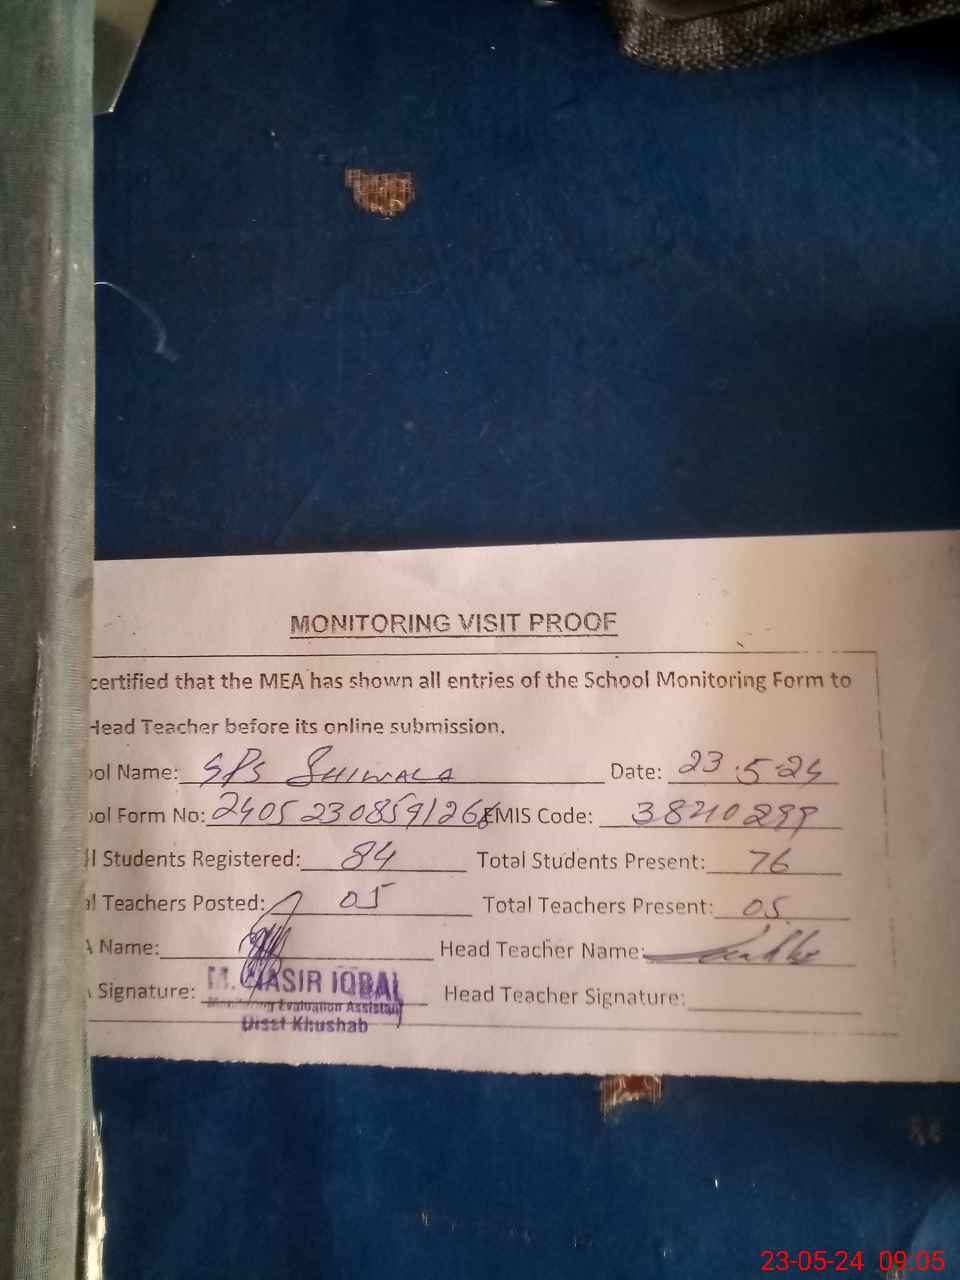 MONITORING VISIT PROOF
certified that the MEA has shown all entries of the School Monitoring Form to
Head Teacher before its online submission.
ool Name: GPS SHIWALA Date: 23.5.24
ool Form No: 2405230859126 EMIS Code: 38210299
l Students Registered: 84 Total Students Present: 76
al Teachers Posted: 05 Total Teachers Present: 05
A Name: Head Teacher Name:
Signature: M. NASIR IQBAL Head Teacher Signature:
Monitoring Evaluation Assistant
Disst Khushab
23-05-24 09:05